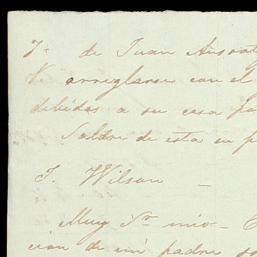 7- de Juan
arreglarse con el
debidas a su casa
Saldre de esta en
T. Wilson -
Muy Sr mio -
cion de mi padre